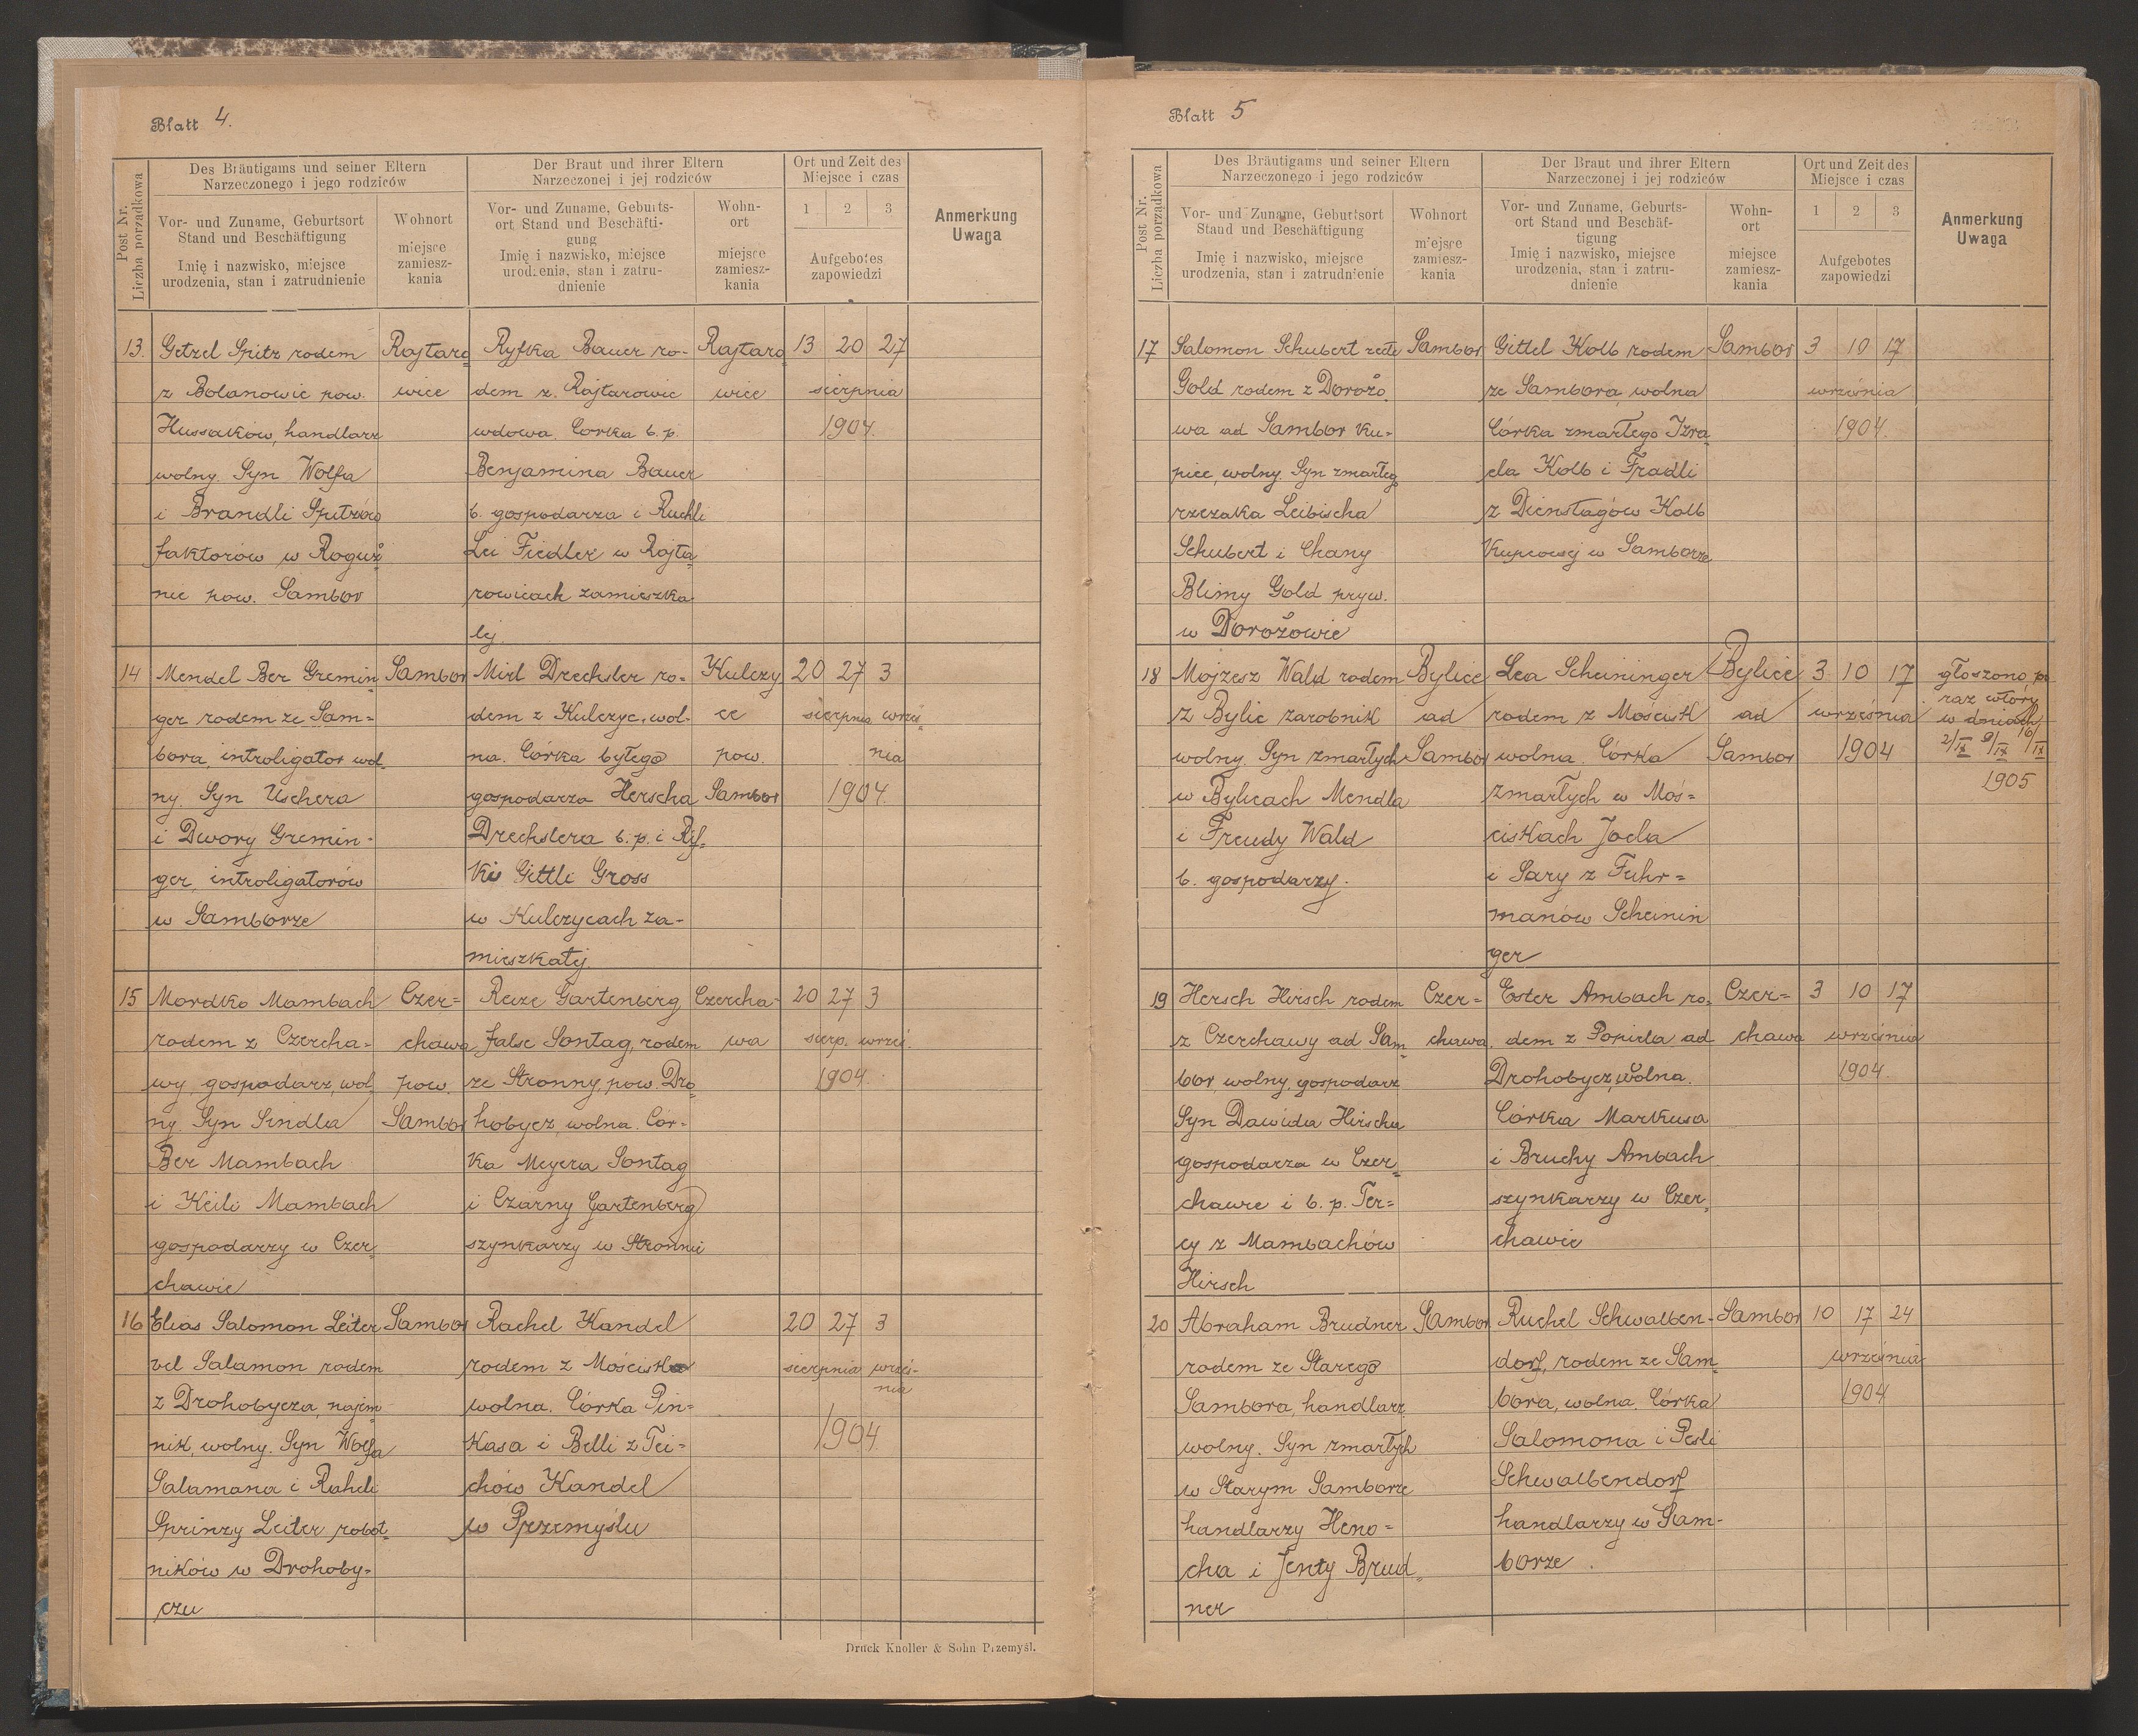 Blatt 4.
Post Nr.
Liczba porządkowa
Des Bräutigams und seiner Eltern
Narzeczonego i jego rodziców
Der Braut und ihrer Eltern
Narzeczonej i jej rodziców
Ort und Zeit des
Miejsce i czas
Anmerkung
Uwaga
Vor- und Zuname, Geburtsort
Stand und Beschäftigung
Imię i nazwisko, miejsce
urodzenia, stan i zatrudnienie
Wohnort
miejsce
zamiesz-
kania
Vor- und Zuname, Geburts-
ort Stand und Beschäfti-
gung
Imię i nazwisko, miejsce
urodzenia, stan i zatru-
dnienie
Wohn-
ort
miejsce
zamiesz-
kania
1 2 3
Aufgebotes
zapowiedzi
13.
Getzel Spitz rodem
z Bolanowic pow.
Hussaków, handlarz
wolny. Syn Wolfa
i Brandli Spitzów
faktorów w Roguź-
nie pow. Sambor
Rajtaro-
wice
Ryfka Bauer ro-
dem z Rajtarowic
wdowa. Corka b. p.
Benjamina Bauer
b. gospodarza i Ruchli
Lei Fiedler w Rajta-
rowicach zamieszka-
łej.
Rajtaro-
wice
13 20 27
sierpnia
1904.
14
Mendel Ber Gremin-
ger rodem ze Sam=
bora, introligator wol-
ny. Syn Uschera
i Dwory Gremin-
ger, introligatorów
w Samborze
Sambor
Mirl Drechsler ro-
dem z Kulczyc, wol-
na. Córka byłego
gospodarza Herscha
Drechslera b. p. i Ryf-
ki Gittli Gross
w Kulczycach za-
mieszkałej.
Kulczy
ce
pow.
Sambor
20 27 3
sierpnia wrześ-
nia
1904.
15
Mordko Mambach
rodem z Czercha=
wy, gospodarz, wol-
ny. Syn Sindla
Ber Mambach
i Keili Mambach
gospodarzy w Czer-
chawie
Czer=
chawa
pow.
Sambor
Reize Gartenberg
false Sontag, rodem
ze Stronny, pow. Dro-
hobycz, wolna. Cór-
ka Meyera Sontag
i Czarny Gartenberg
szynkarzy w Stronnie
Czercha-
wa
20 27 3
sierp. wrześ.
1904.
16
Elias Salomon Leiter
vel Salamon rodem
z Drohobycza, najem-
nik, wolny. Syn Wolfa
Salamana i Raheli
Sprinzy Leiter robot-
ników w Drohoby-
czu
Sambor
Rachel Kandel
rodem z Mościsk
wolna. Córka Pin-
kasa i Belli z Tei-
chów Kandel
w Przemyślu
20 27 3
sierpnia wrześ-
nia
1904.
Druck Knoller & Sohn Przemyśl.
Blatt 5
Post Nr.
Liczba porządkowa
Des Bräutigams und seiner Eltern
Narzeczonego i jego rodziców
Der Braut und ihrer Eltern
Narzeczonej i jej rodziców
Ort und Zeit des
Miejsce i czas
Anmerkung
Uwaga
Vor- und Zuname, Geburtsort
Stand und Beschäftigung
Imię i nazwisko, miejsce
urodzenia, stan i zatrudnienie
Wohnort
miejsce
zamiesz-
kania
Vor- und Zuname, Geburts-
ort Stand und Beschäf-
tigung
Imię i nazwisko, miejsce
urodzenia, stan i zatru-
dnienie
Wohn-
ort
miejsce
zamiesz-
kania
1 2 3
Aufgebotes
zapowiedzi
17
Salomon Schubert recte
Gold rodem z Dorożo-
wa ad Sambor ku=
piec, wolny. Syn zmarłeg
rzezaka Leibischa
Schubert i Chany
Blimy Gold pryw.
w Dorożowie
Sambor
Gittel Kolb rodem
ze Sambora, wolna
Córka zmarłego Izra-
ela Kolb i Fradli
z Dienstagów Kolb
Kupcowej w Samborze
Sambor
3 10 17
września
1904.
18
Mojzesz Wald rodem
z Bylic zarobnik
wolny. Syn zmarłych
w Bylicach Mendla
i Freudy Wald
b. gospodarzy.
Bylice
ad
Sambor
Lea Scheininger
rodem z Mościsk
wolna. Córka
zmarłych w Moś=
ciskach Joela
i Sary z Fuhr=
manów Scheinin
ger
Bylice
ad
Sambor
3 10 17
września
1904
głoszono po
raz wtóry
w dniach
2/IX 9/IX 16/IX
1905
19
Hersch Hirsch rodem
z Czerchawy ad Sam-
bor, wolny, gospodarz
Syn Dawida Hirscha
gospodarza w Czer-
chawie i b. p. Ter=
cy z Mambachów
Hirsch
Czer=
chawa
Ester Ambach ro-
dem z Popiela ad
Drohobycz, wolna.
Córka Markusa
i Bruchy Ambach
szynkarzy w Czer-
chawie
Czer=
chawa
3 10 17
września
1904.
20
Abraham Brudner
rodem ze Starego
Sambora, handlarz
wolny. Syn zmarłych
w Starym Samborze
handlarzy Heno=
cha i Jenty Brud-
ner
Sambor
Ruchel Schwalben-
dorf, rodem ze Sam-
bora, wolna. Córka
Salomona i Pesli
Schwalbendorf
handlarzy w Sam-
borze.
Sambor
10 17 24
września
1904